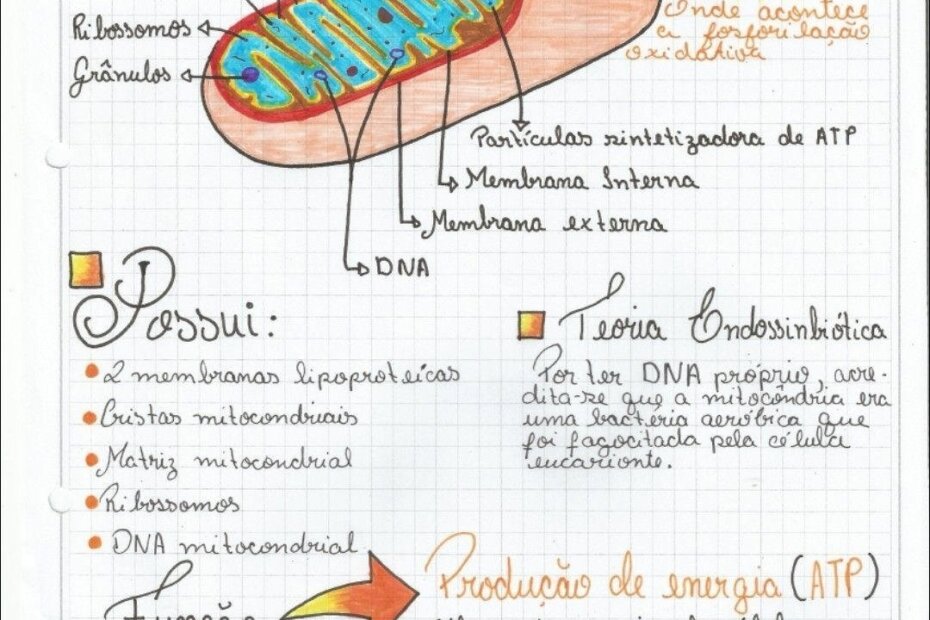 Onde acontece
a fosforilação
oxidativa
Ribossomos
Grânulos
Partículas sintetizadora de ATP
Membrana Interna
Membrana externa
DNA
Possui:
2 membranas lipoproteícas
Cristas mitocondriais
Matriz mitocondrial
Ribossomos
DNA mitocondrial
Teoria Endossinbiótica
Por ter DNA próprio, acre-
dita-se que a mitocôndria era
uma bactéria aeróbica que
foi fagocitada pela célula
eucarionte.
Função
Produção de energia (ATP)